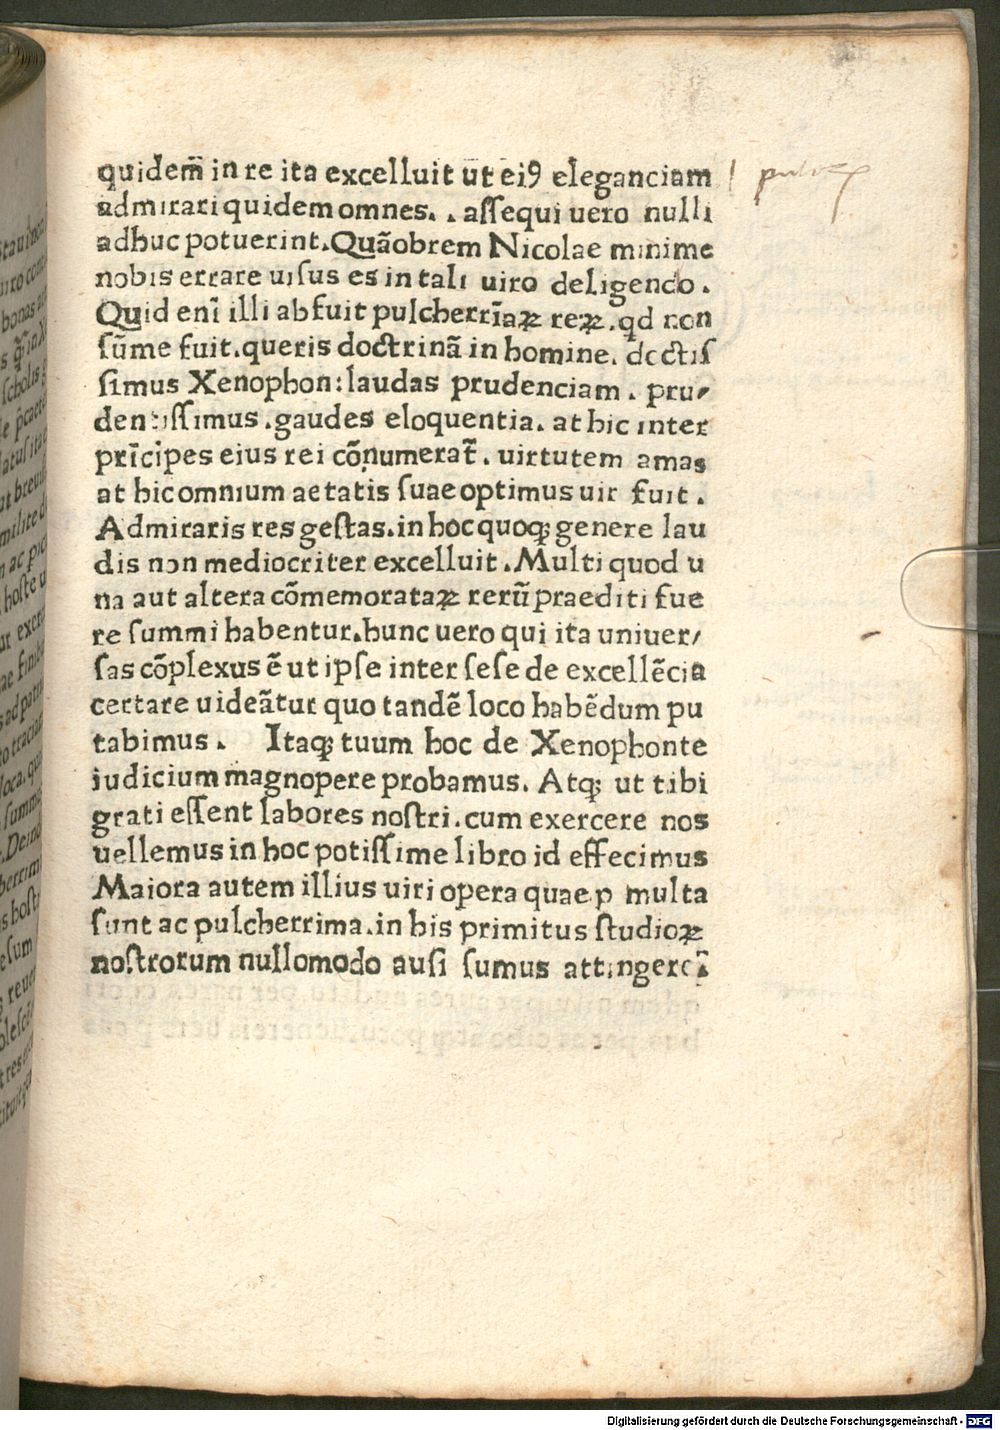 quidem̃ in re ita excelluit ut̄ eiꝰ eleganciam
admirari quidem omnes. . assequi uero nulli
adhuc potuerint. Quãobrem Nicolae minime
nobis errare uisus es in tali uiro deligendo.
Quid enī illi abfuit pulcherrīaꝝ reꝝ. qd non
sūme fuit. queris doctrinã in homine. doctis
simus Xenophon: laudas prudenciam. pru⸗
dentissimus. gaudes eloquentia. at hic inter
prīcipes eius rei cōnumerat̄. uirtutem amas
at hic omnium aetatis suae optimus uir fuit.
Admiraris res gestas. in hoc quoqꝫ genere lau
dis non mediocriter excelluit. Multi quod u
na aut altera cōmemorataꝝ rerū praediti fue
re summi habentur. hunc uero qui ita uniuer/
sas cōplexus ē ut ipse inter sese de excellēcia
certare uideãtur quo tandē loco habēdum pu
tabimus. Itaqꝫ tuum hoc de Xenophonte
iudicium magnopere probamus. Atqꝫ ut tibi
grati essent labores nostri. cum exercere nos
uellemus in hoc potissime libro id effecimus
Maiora autem illius uiri opera quae p multa
sunt ac pulcherrima. in his primitus studioꝝ
nostrorum nullomodo ausi sumus attingere:
Digitalisierung gefördert durch die Deutsche Forschungsgemeinschaft - DFG